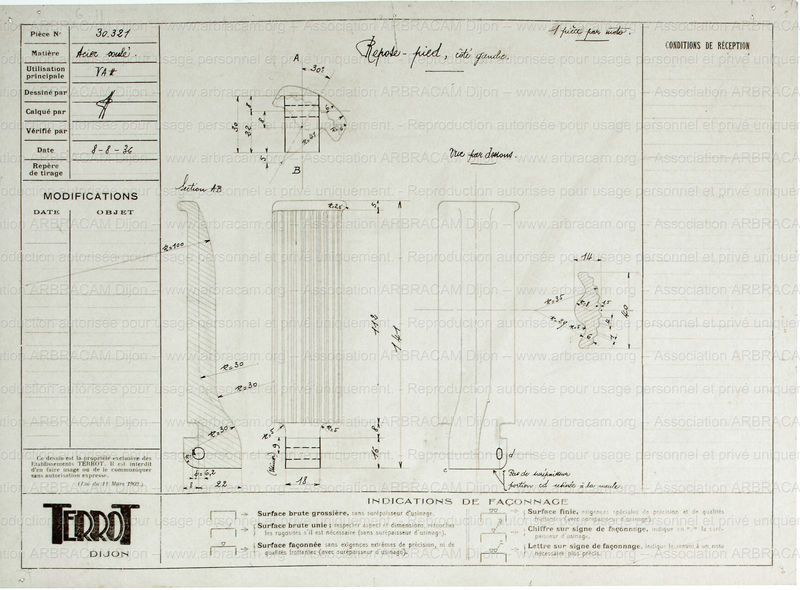 Pièce N° 30.321
Matière Acier moulé.
Utilisation principale VA
Dessiné par
Calqué par
Vérifié par
Date 8-8-36
Repère de tirage
MODIFICATIONS
DATE OBJET
Repose-pied, côté gauche.
1 pièce par moto.
CONDITIONS DE RÉCEPTION
A
30°
30
32
8
8
5
B
Section AB
Vue par dessous.
r=100
r=30
r=30
r=30
r=25
5
113
141
8
16
18
22
14
40
r=35
r=29
c
d
Pas de surépaisseur
portion cd usinée à la meule.
Ce dessin est la propriété exclusive des
Etablissements TERROT. Il est interdit
d'en faire usage ou de le communiquer
sans autorisation expresse.
(Loi du 11 Mars 1902.)
TERROT
DIJON
INDICATIONS DE FAÇONNAGE
Surface brute grossière, sans surépaisseur d'usinage.
Surface brute unie : respecter aspect et dimensions, retoucher
les rugosités s'il est nécessaire (sans surépaisseur d'usinage).
Surface façonnée sans exigences extrêmes de précision, ni de
qualités frottantes (avec surépaisseur d'usinage).
Surface finie, exigences spéciales de précision et de qualités
frottantes (avec surépaisseur d'usinage).
Chiffre sur signe de façonnage, indique en m/m la surépaisseur d'usinage.
Lettre sur signe de façonnage, indique le renvoi à une note
nécessaire plus précise.
www.arbracam.org – Association ARBRACAM Dijon – Reproduction autorisée pour usage personnel et privé uniquement.